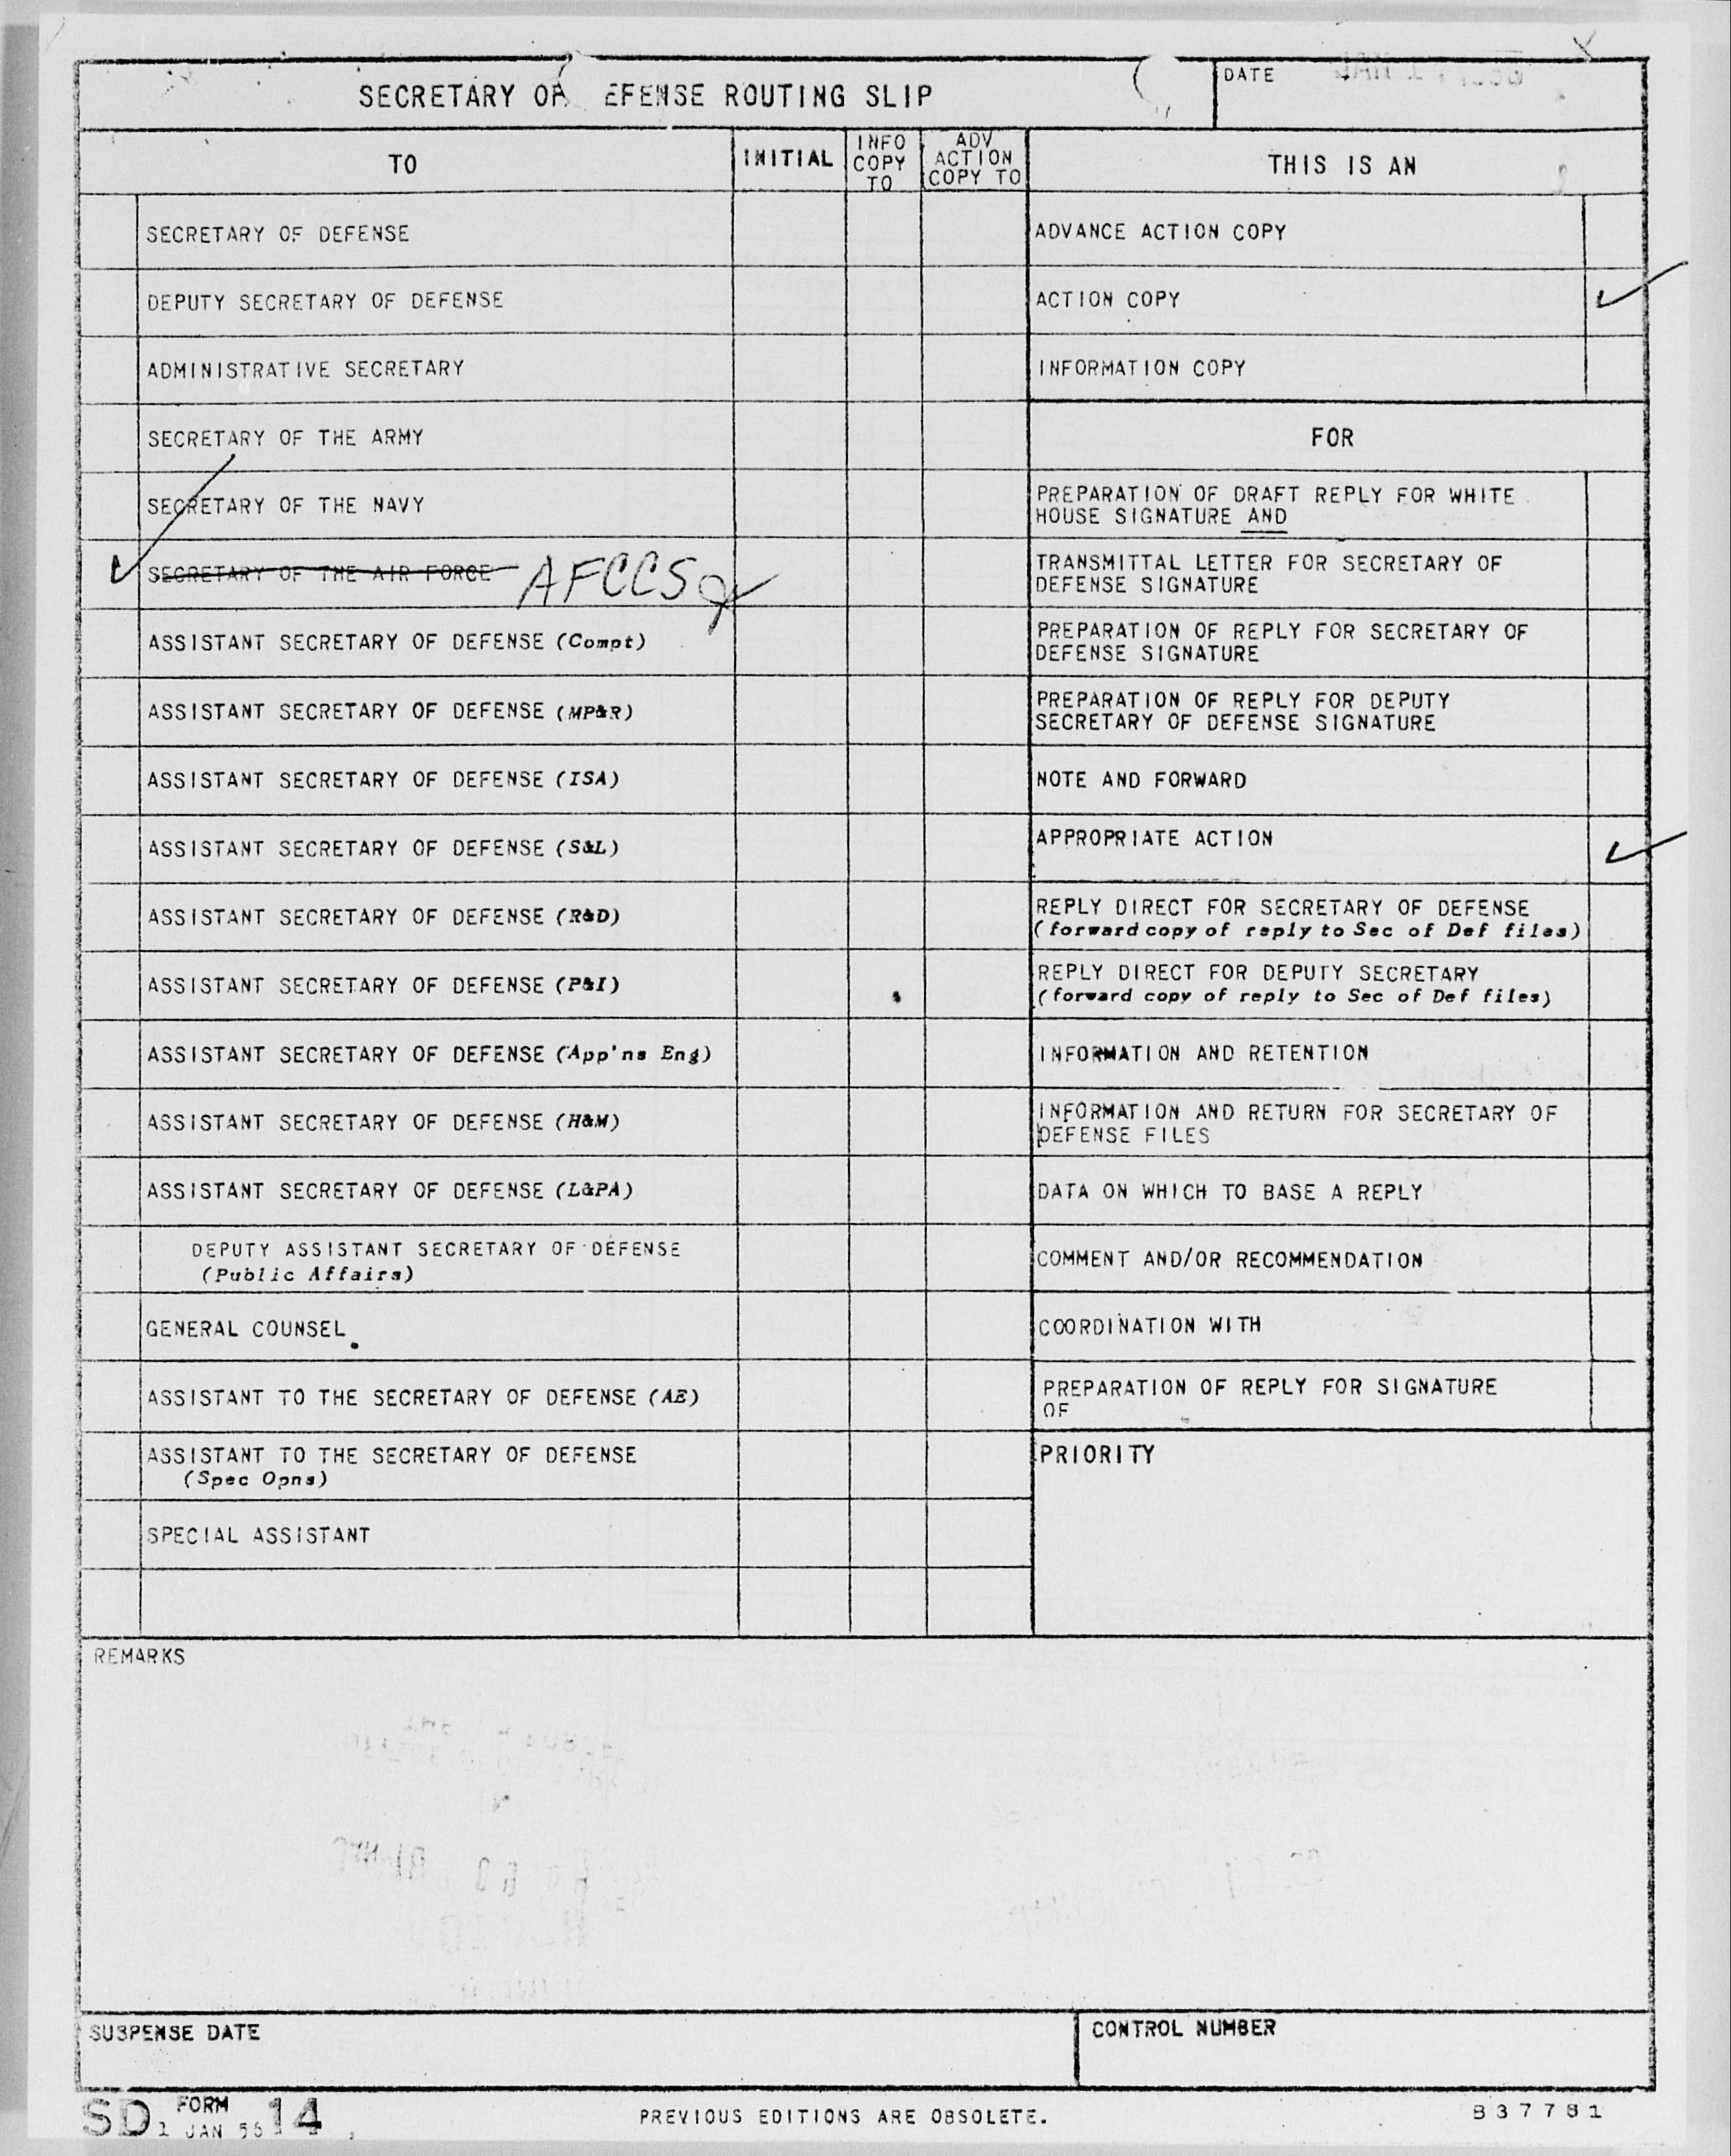 SECRETARY OF EFENSE ROUTING SLIP
DATE
TO
INITIAL
INFO
COPY
TO
ADV
ACTION
COPY TO
THIS IS AN
SECRETARY OF DEFENSE
ADVANCE ACTION COPY
DEPUTY SECRETARY OF DEFENSE
ACTION COPY
ADMINISTRATIVE SECRETARY
INFORMATION COPY
SECRETARY OF THE ARMY
FOR
SECRETARY OF THE NAVY
PREPARATION OF DRAFT REPLY FOR WHITE
HOUSE SIGNATURE AND
SECRETARY OF THE AIR FORCE AFCCS
TRANSMITTAL LETTER FOR SECRETARY OF
DEFENSE SIGNATURE
ASSISTANT SECRETARY OF DEFENSE (Compt)
PREPARATION OF REPLY FOR SECRETARY OF
DEFENSE SIGNATURE
ASSISTANT SECRETARY OF DEFENSE (MP&R)
PREPARATION OF REPLY FOR DEPUTY
SECRETARY OF DEFENSE SIGNATURE
ASSISTANT SECRETARY OF DEFENSE (ISA)
NOTE AND FORWARD
ASSISTANT SECRETARY OF DEFENSE (S&L)
APPROPRIATE ACTION
ASSISTANT SECRETARY OF DEFENSE (R&D)
REPLY DIRECT FOR SECRETARY OF DEFENSE
(forward copy of reply to Sec of Def files)
ASSISTANT SECRETARY OF DEFENSE (P&I)
REPLY DIRECT FOR DEPUTY SECRETARY
(forward copy of reply to Sec of Def files)
ASSISTANT SECRETARY OF DEFENSE (App'ns Eng)
INFORMATION AND RETENTION
ASSISTANT SECRETARY OF DEFENSE (H&M)
INFORMATION AND RETURN FOR SECRETARY OF
DEFENSE FILES
ASSISTANT SECRETARY OF DEFENSE (L&PA)
DATA ON WHICH TO BASE A REPLY
DEPUTY ASSISTANT SECRETARY OF DEFENSE
(Public Affairs)
COMMENT AND/OR RECOMMENDATION
GENERAL COUNSEL
COORDINATION WITH
ASSISTANT TO THE SECRETARY OF DEFENSE (AE)
PREPARATION OF REPLY FOR SIGNATURE
OF
ASSISTANT TO THE SECRETARY OF DEFENSE
(Spec Opns)
PRIORITY
SPECIAL ASSISTANT
REMARKS
SUSPENSE DATE
CONTROL NUMBER
SD FORM 14
1 JAN 56
PREVIOUS EDITIONS ARE OBSOLETE.
B37781